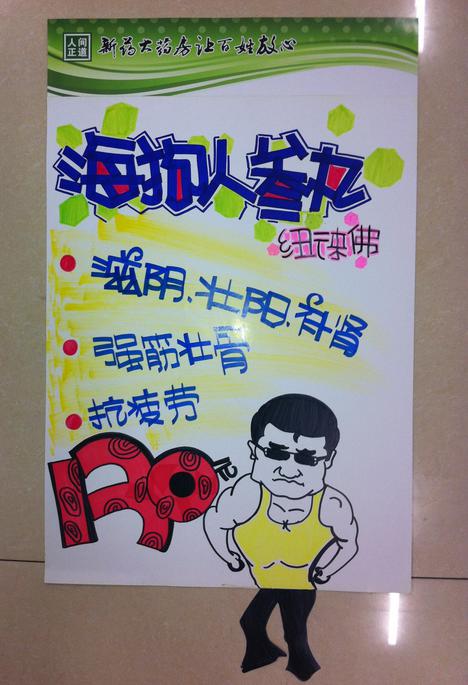 人间
正道
新药大药房让百姓放心
海狗人参丸
滋阴.壮阳.补肾
强筋壮骨
抗疲劳